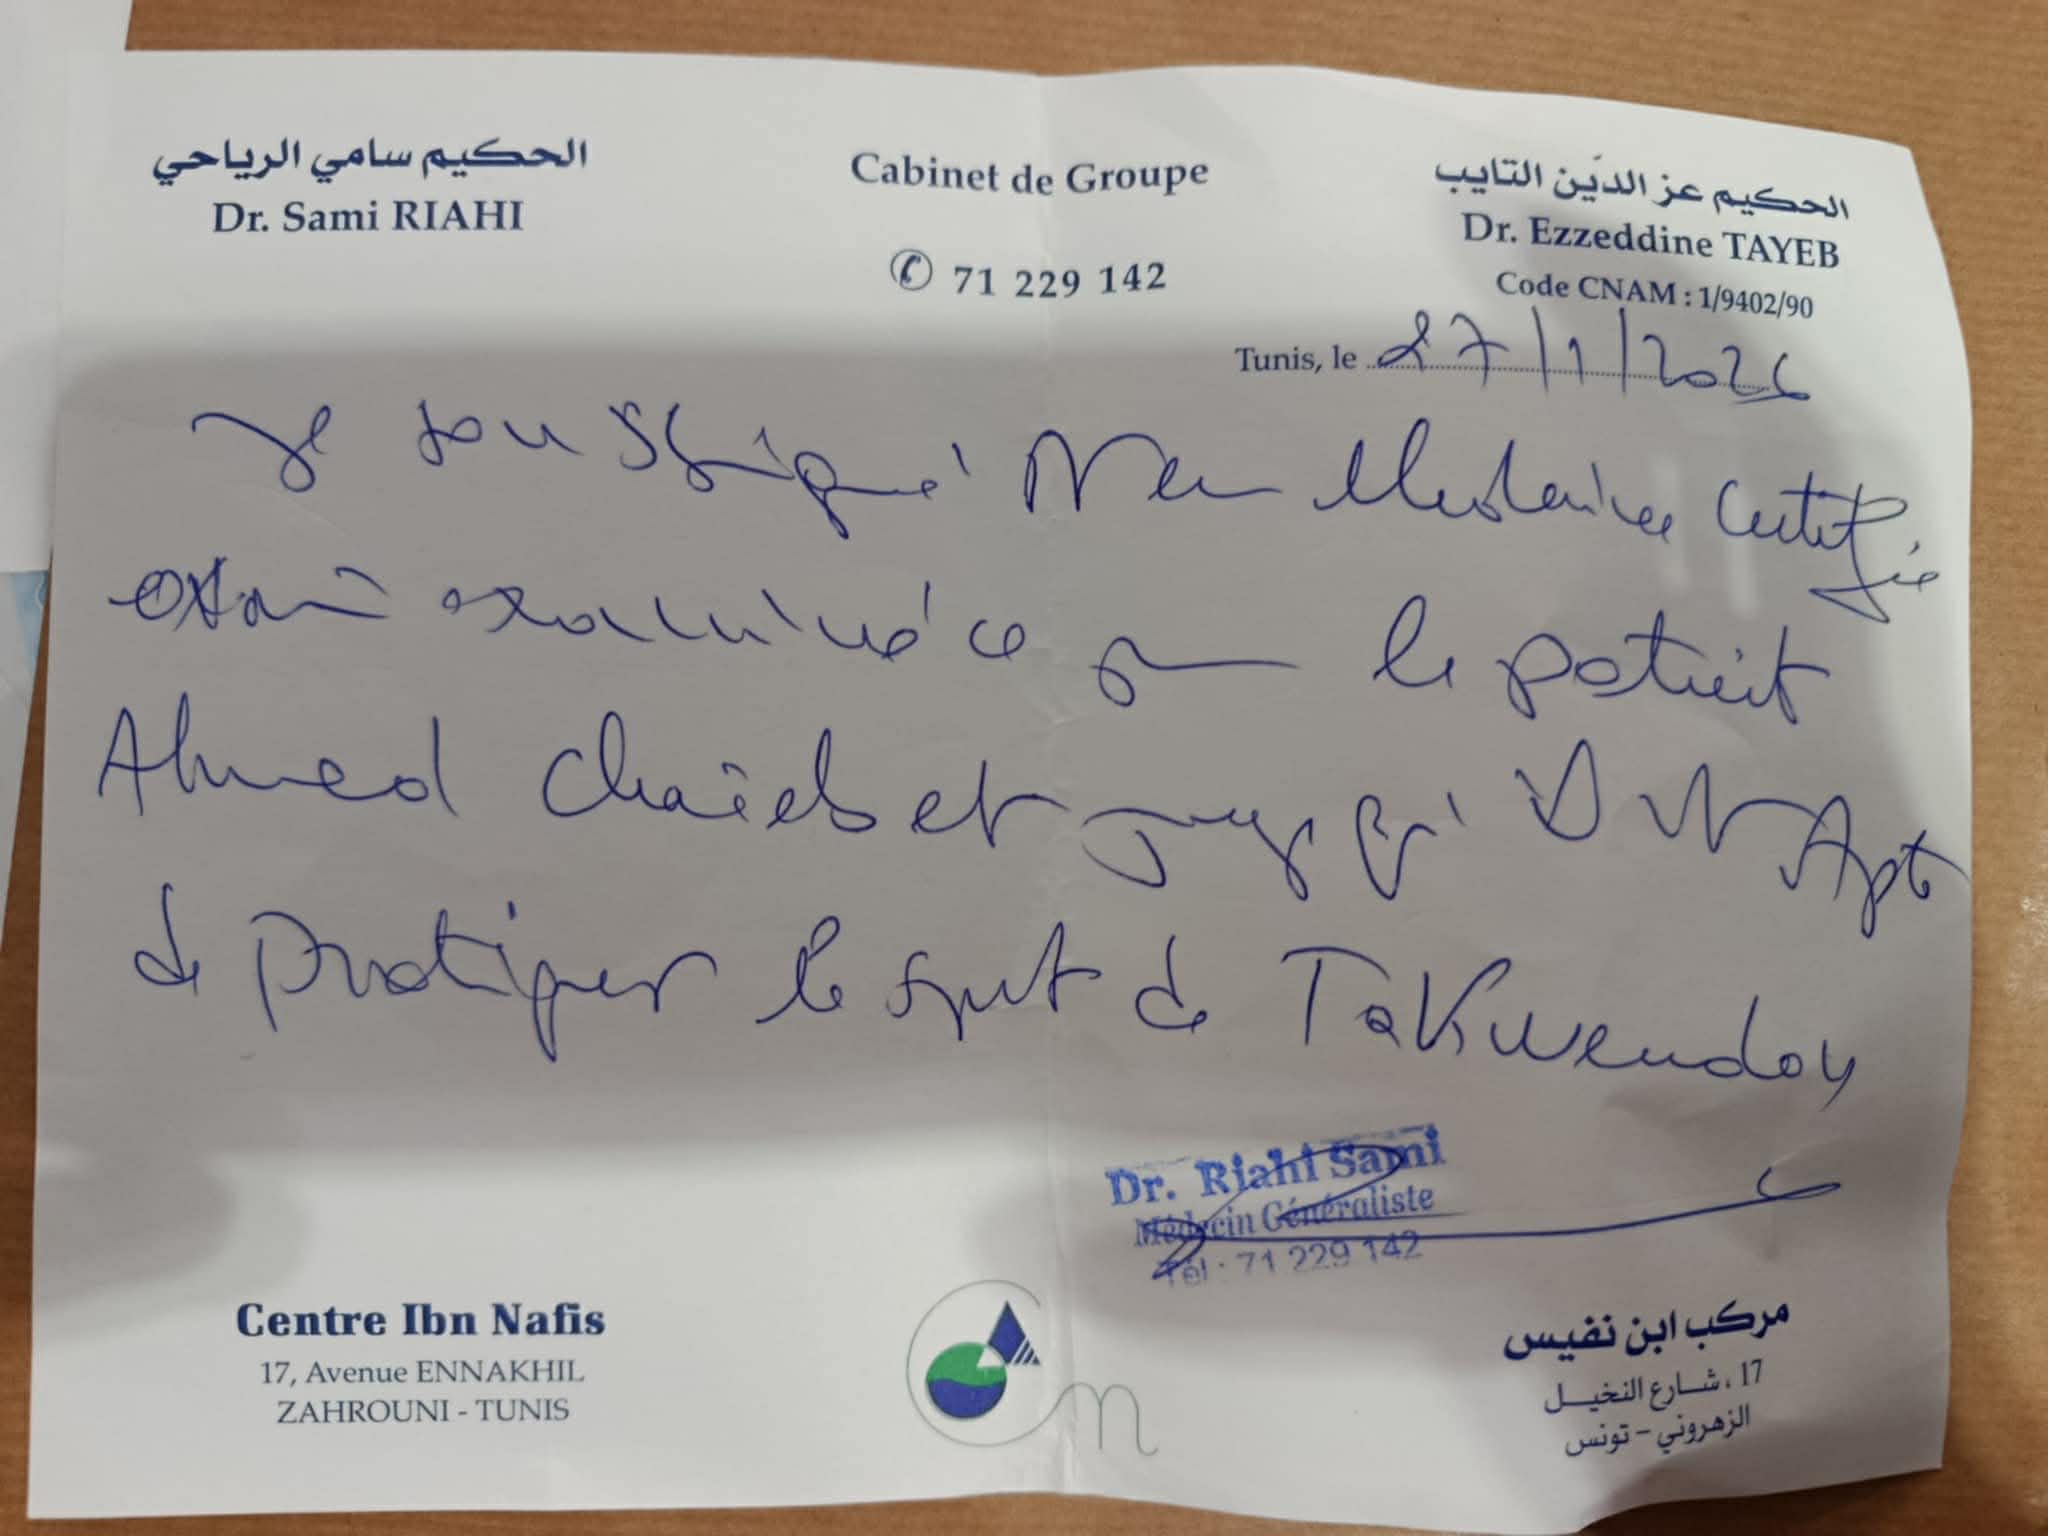 الحكيم سامي الرياحي
Dr. Sami RIAHI
Cabinet de Groupe
71 229 142
الحكيم عز الدين التايب
Dr. Ezzeddine TAYEB
Code CNAM : 1/9402/90
Tunis, le 27/1/2026
Je soussigné certifie
examiné ce le patient
Ahmed Chaieb et Apt
de pratiquer le sport de Takwendoy
Dr. Riahi Sami
Médecin Généraliste
Tél : 71 229 142
Centre Ibn Nafis
17, Avenue ENNAKHIL
ZAHROUNI - TUNIS
مركب ابن نفيس
17، شارع النخيل
الزهروني - تونس